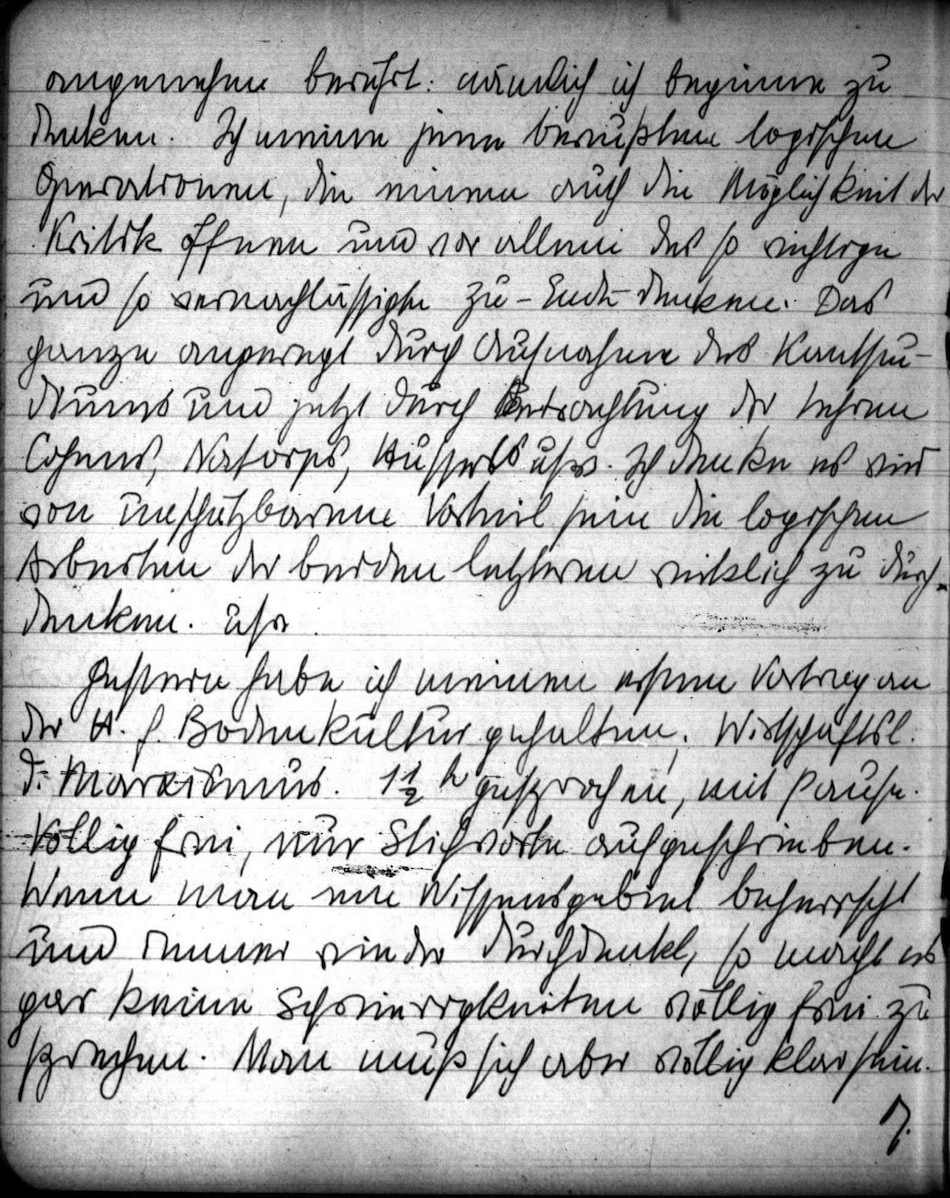 angenehm berührt: nämlich ich beginne zu
denken. Ich meine jene bewußten logischen
Operationen, die einem auch die Möglichkeit der
Kritik öffnen und vor allem das so wichtige
und so vernachlässigte zu-Ende-denken. Das
ganze angeregt durch Aufnahme des Kantstu-
diums und jetzt durch Betrachtung der Lehren
Cohens, Natorps, Husserls usw. Ich denke es wird
von unschätzbarem Vorteil sein die logischen
Arbeiten der beiden letzteren wirklich zu durch-
denken. usw.
Gestern habe ich meinen ersten Vortrag an
der H. f. Bodenkultur gehalten; Wirtschaftsl.
d. Marxismus. 1½ h gesprochen, mit Pause.
Völlig frei, nur Stichworte aufgeschrieben.
Wenn man ein Wissensgebiet beherrscht
und immer wieder durchdenkt, so macht es
gar keine Schwierigkeiten völlig frei zu
sprechen. Man muß sich aber völlig klar sein.
7.